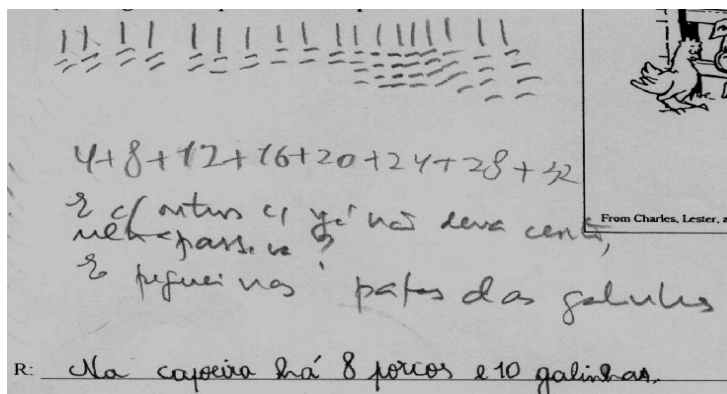 4+8+12+16+20+24+28+32
E c/ outros 4 já não dava certo,
passava
E peguei nas patas das galinhas
From Charles, Lester, a
R: Na capoeira há 8 porcos e 10 galinhas.